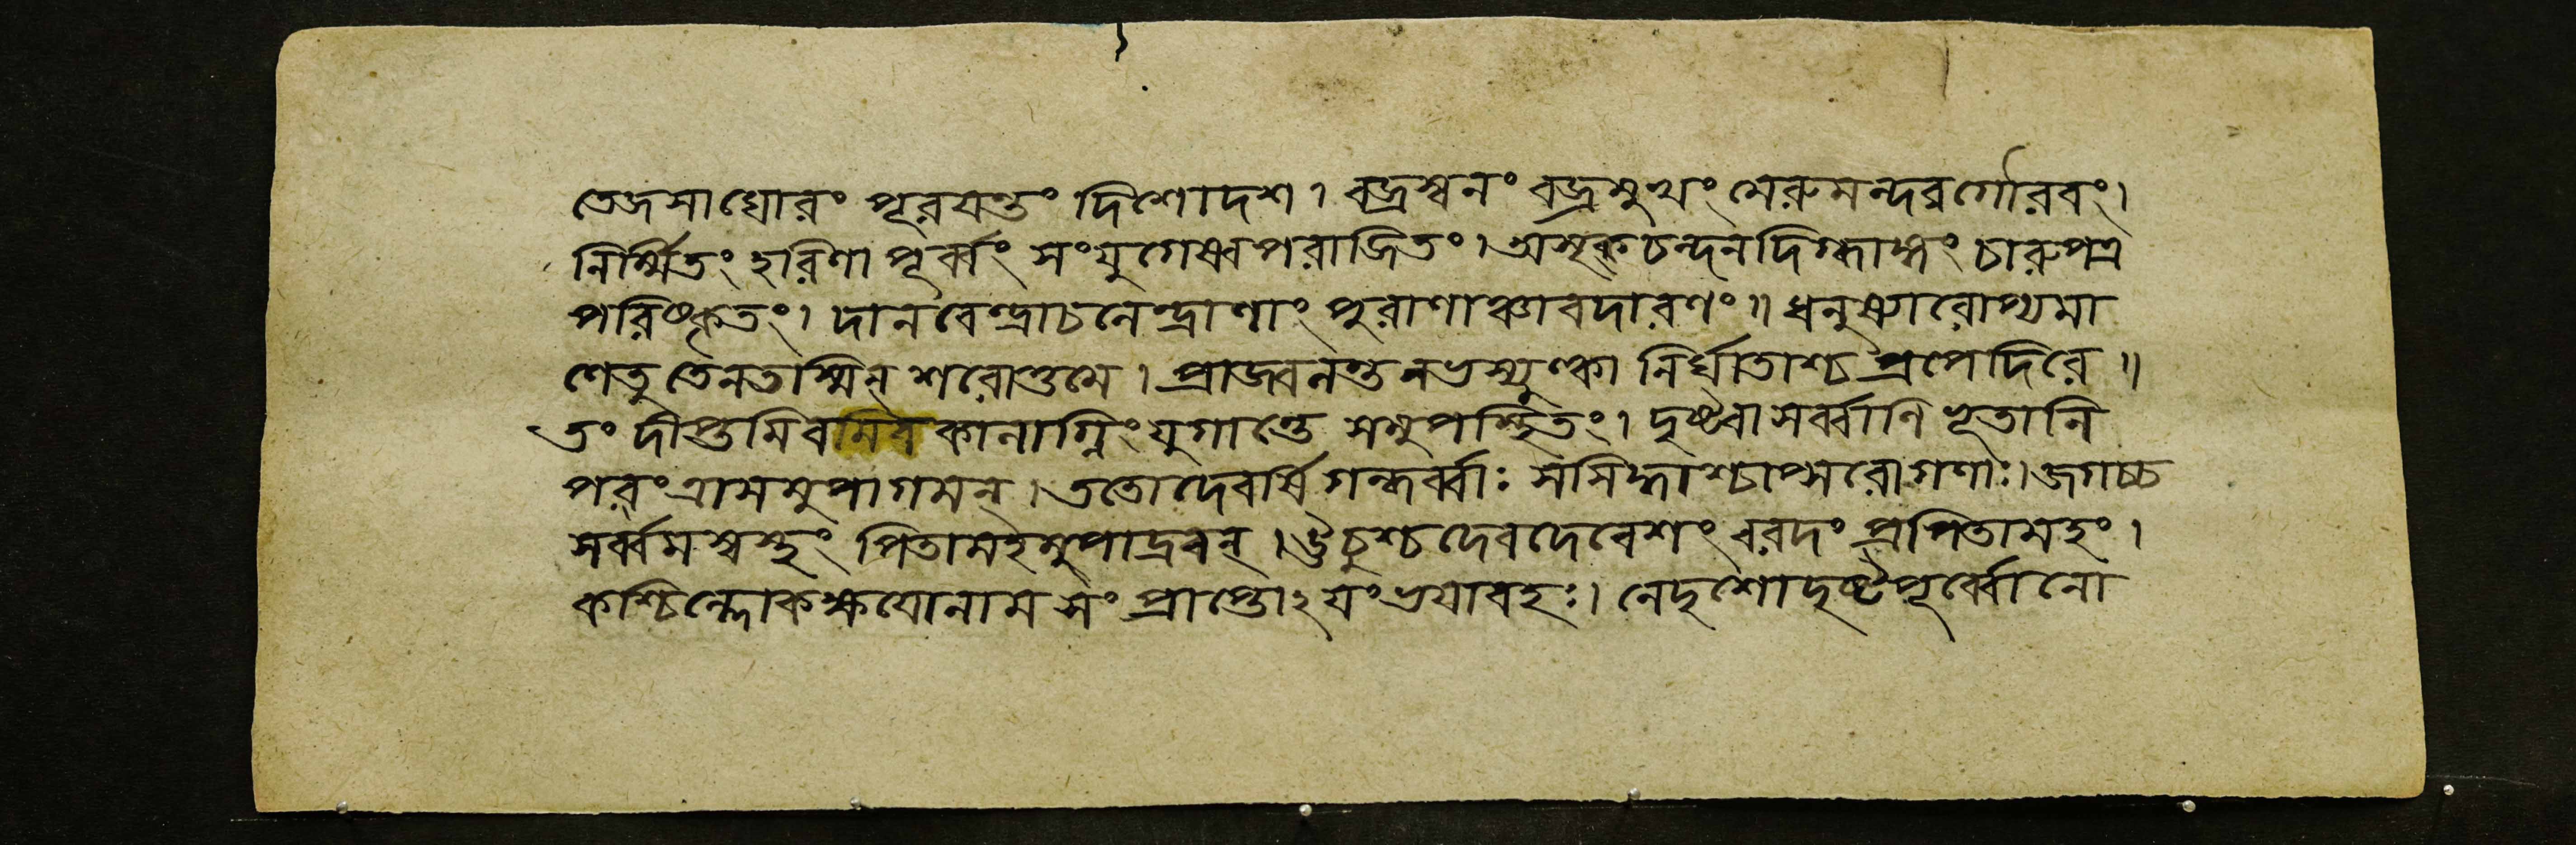 তেজসাঘোরং পূরযন্তং দিশোদশ। বজ্রস্বনং বজ্রমুখং মেরুমন্দরগৌরবং।
নির্ম্মিতং হরিণা পূর্ব্বং সংযুগেষ্বপরাজিতং। অসৃক্চন্দনদিগ্ধাঙ্গং চারুপত্র
পরিষ্কৃতং। দানবেন্দ্রাচলেন্দ্রাণাং পুরাণাঞ্চাবদারণং॥ ধনুষ্যারোপ্যমা
ণেতু তেনতস্মিন্ শরোত্তমে। প্রাজ্বলনন্তুনভস্যুল্কা নির্ঘাতাশ্চ প্রপেদিরে॥
তং দীপ্তমিবমিব কালাগ্নিং যুগান্তে সমুপস্থিতং। দৃষ্ট্বা সর্ব্বাণি ভূতানি
পরং ত্রাসমুপাগমন্। ততোদেবর্ষি গন্ধর্ব্বাঃ সসিদ্ধাশ্চাপ্সরোগণাঃ। জগচ্চ
সর্ব্বমস্বস্থং পিতামহমুপাদ্রবন্। ঊচুশ্চ দেবদেবেশং বরদং প্রপিতামহং।
কশ্চিল্লোকক্ষযোনাম সং প্রাপ্তোঽযংভযাবহঃ। নেদৃশোদৃষ্টপূর্ব্বোনো